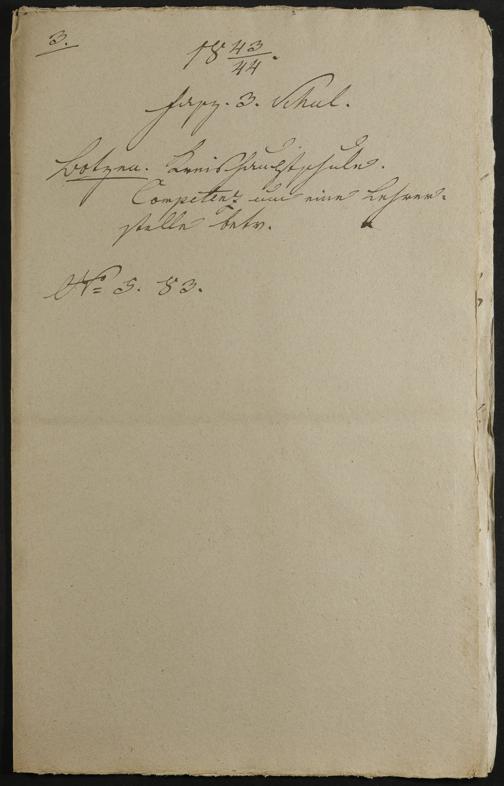 3.
18 43/44.
Fasz. 3. Schul.
Botzen. Kreishauptschule.
Competenz um eine Lehrer-
stelle betr.
No 5. 53.